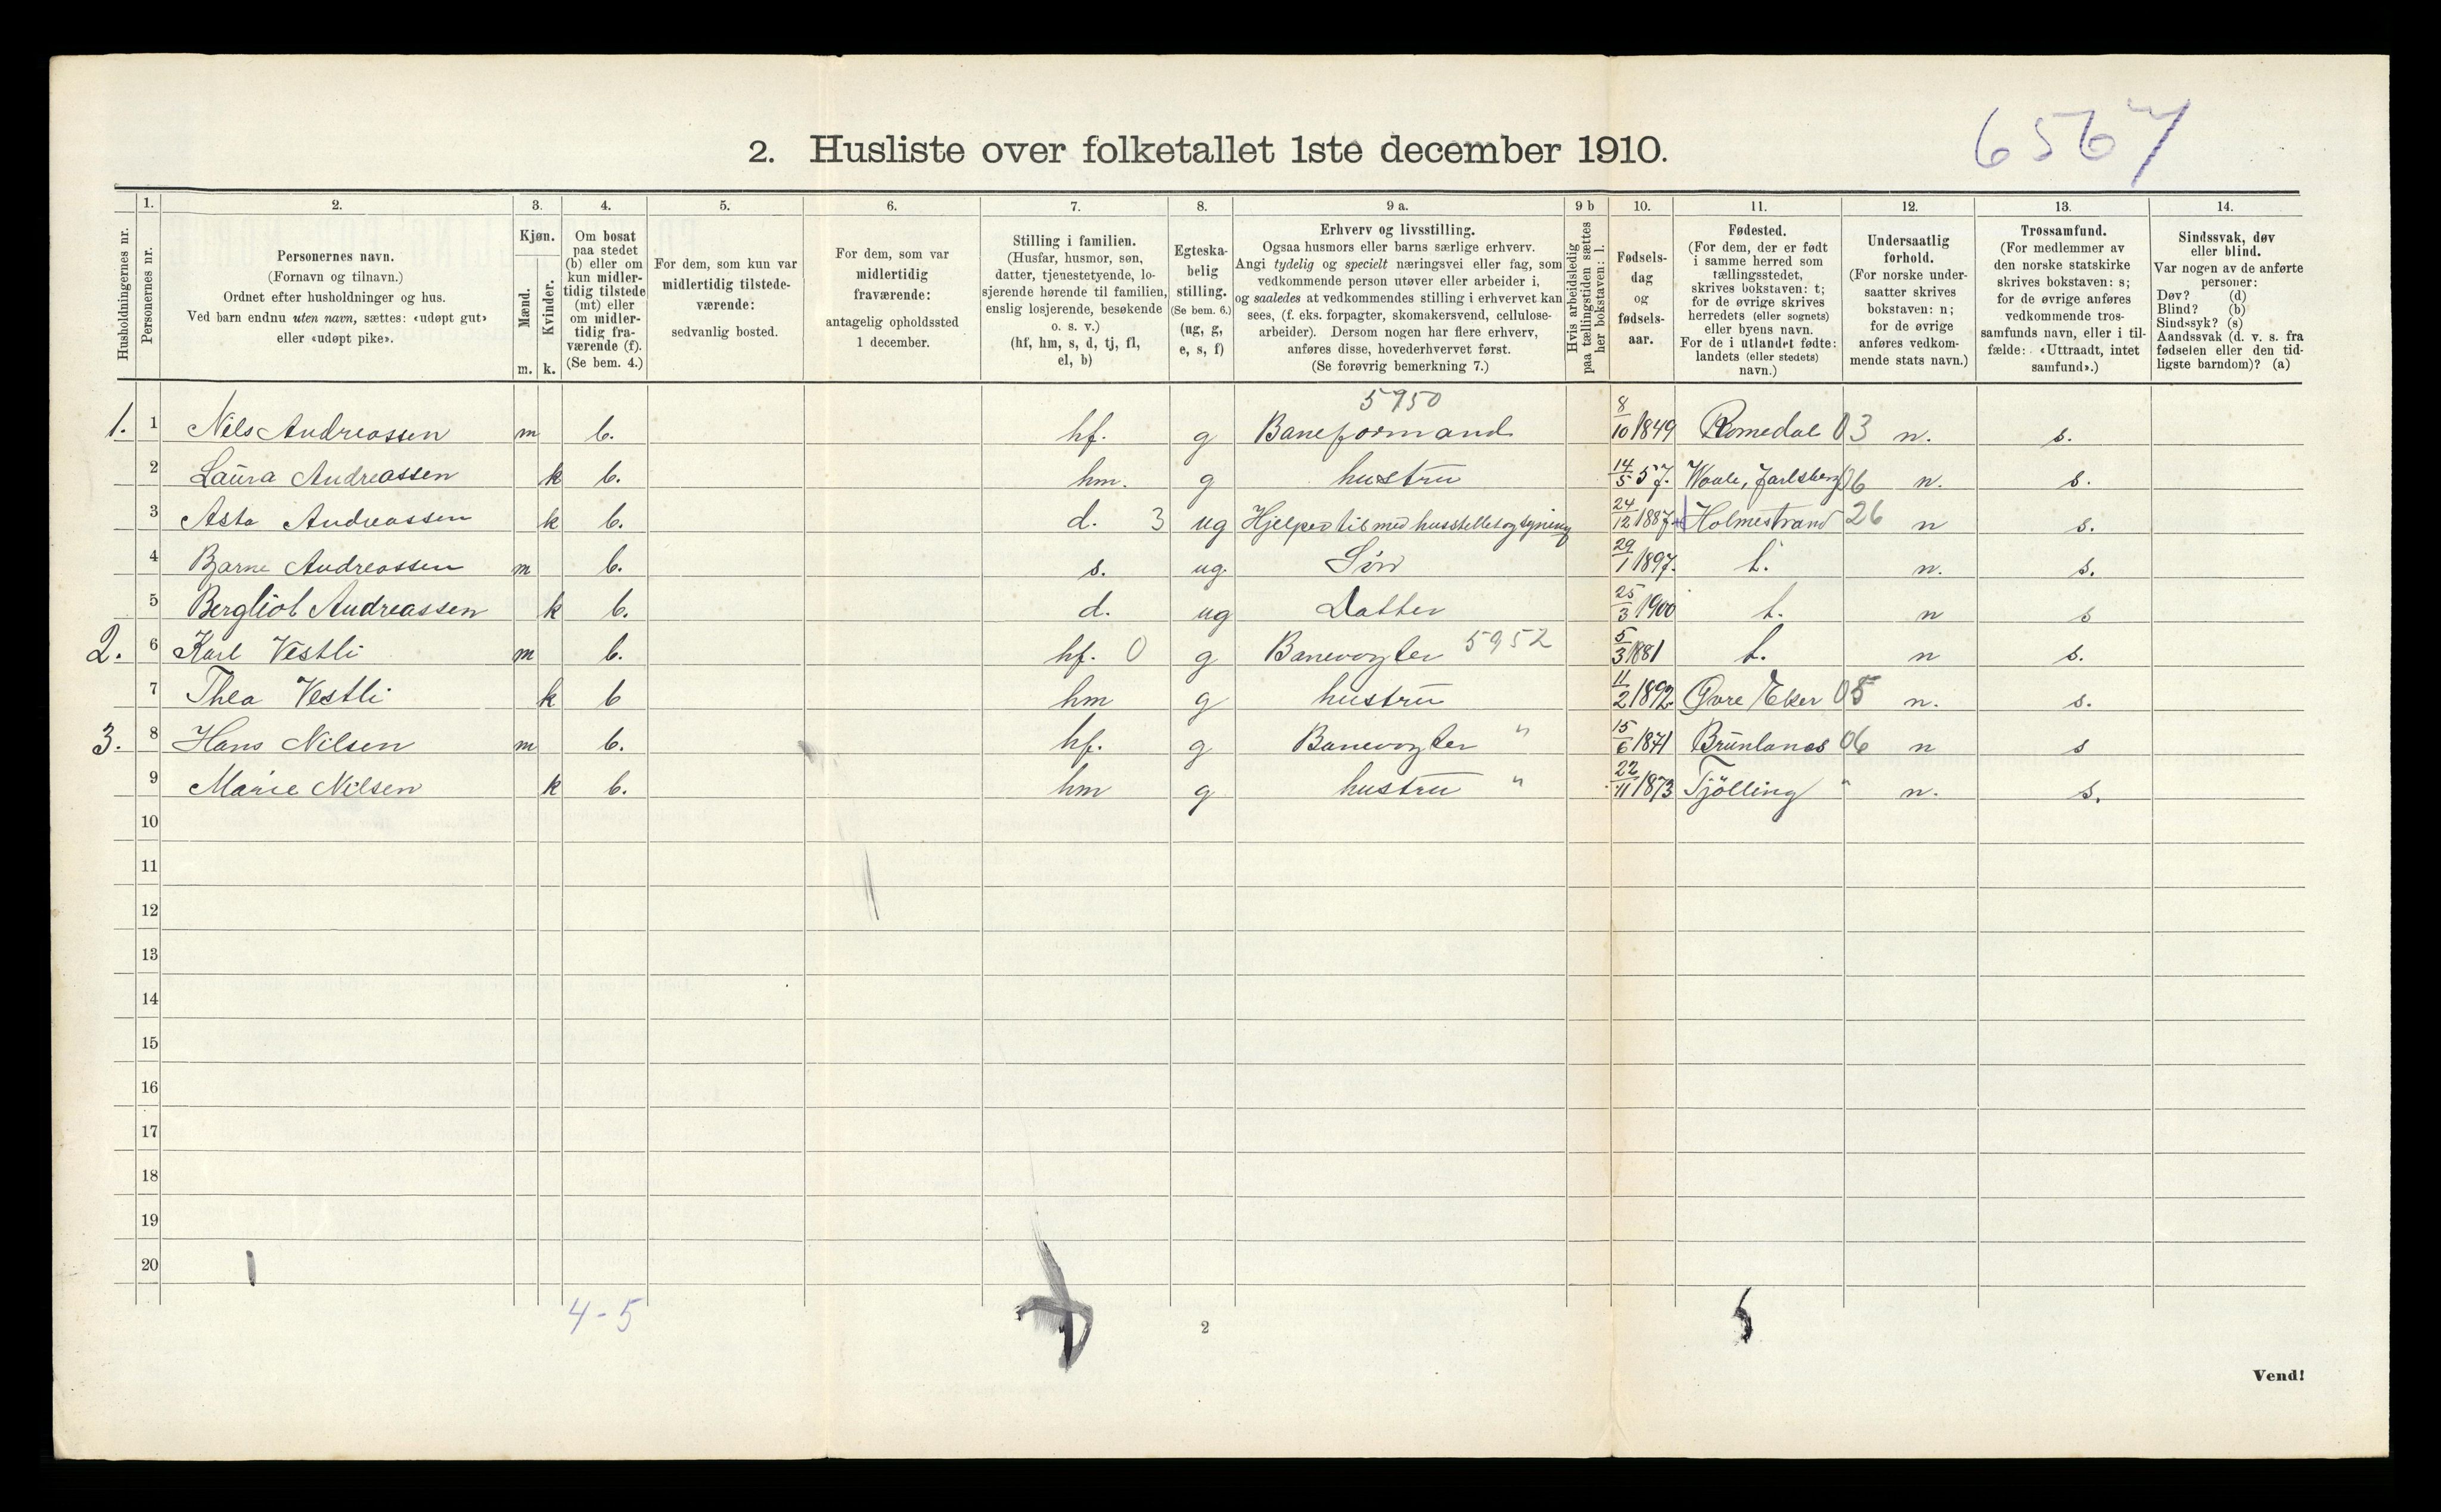 6567
2. Husliste over folketallet 1ste december 1910.
Husholdningernes nr.
1. Personernes nr.
2. Personernes navn.
(Fornavn og tilnavn.)
Ordnet efter husholdninger og hus.
Ved barn endnu uten navn, sættes: «udøpt gut»
eller «udøpt pike».
3. Kjøn.
Mænd. m.
Kvinder. k.
4. Om bosat
paa stedet
(b) eller om
kun midler-
tidig tilstede
(mt) eller
om midler-
tidig fra-
værende (f).
(Se bem. 4.)
5. For dem, som kun var
midlertidig tilstede-
værende:
sedvanlig bosted.
6. For dem, som var
midlertidig
fraværende:
antagelig opholdssted
1 december.
7. Stilling i familien.
(Husfar, husmor, søn,
datter, tjenestetyende, lo-
sjerende hørende til familien,
enslig losjerende, besøkende
o. s. v.)
(hf, hm, s, d, tj, fl,
el, b)
8. Egteska-
belig
stilling.
(Se bem. 6.)
(ug, g,
e, s, f)
9 a. Erhverv og livsstilling.
Ogsaa husmors eller barns særlige erhverv.
Angi tydelig og specielt næringsvei eller fag, som
vedkommende person utøver eller arbeider i,
og saaledes at vedkommendes stilling i erhvervet kan
sees, (f. eks. forpagter, skomakersvend, cellulose-
arbeider). Dersom nogen har flere erhverv,
anføres disse, hovederhvervet først.
(Se forøvrig bemerkning 7.)
9 b Hvis arbeidsledig
paa tællingstiden sættes
her bokstaven: l.
10. Fødsels-
dag
og
fødsels-
aar.
11. Fødested.
(For dem, der er født
i samme herred som
tællingsstedet,
skrives bokstaven: t;
for de øvrige skrives
herredets (eller sognets)
eller byens navn.
For de i utlandet fødte:
landets (eller stedets)
navn.)
12. Undersaatlig
forhold.
(For norske under-
saatter skrives
bokstaven: n;
for de øvrige
anføres vedkom-
mende stats navn.)
13. Trossamfund.
(For medlemmer av
den norske statskirke
skrives bokstaven: s;
for de øvrige anføres
vedkommende tros-
samfunds navn, eller i til-
fælde: «Uttraadt, intet
samfund».)
14. Sindssvak, døv
eller blind.
Var nogen av de anførte
personer:
Døv? (d)
Blind? (b)
Sindssyk? (s)
Aandssvak (d. v. s. fra
fødselen eller den tid-
ligste barndom)? (a)
5950
1. 1 Nils Andreassen m b. hf. g Baneformand 8/10 1849 Romedal 03 n. s.
2 Laura Andreassen k b. hm. g hustru 14/5 57. Waale, Jarlsberg 06 n. s.
3 Asta Andreassen k b. d. 3 ug Hjelper til med husstellet og syning 24/12 1887 Holmestrand 26 n s.
4 Bjarne Andreassen m b. s. ug. Søn 29/1 1897. t. n. s.
5 Bergliot Andreassen k b. d. ug Datter 25/3 1900 t. n s
2. 6 Karl Vestli m b. hf. 0 g Banevogter 5952 5/3 1881 t. n s.
7 Thea Vestli k b hm g hustru 11/2 1892. Øvre Eker 05 n. s.
3. 8 Hans Nilsen m b. hf. g Banevogter " 15/6 1871 Brunlanes 06 n s
9 Marie Nilsen k b. hm g hustru " 22/11 1873 Tjölling " n. s.
10
11
12
13
14
15
16
17
18
19
20
4-5
2
Vend!